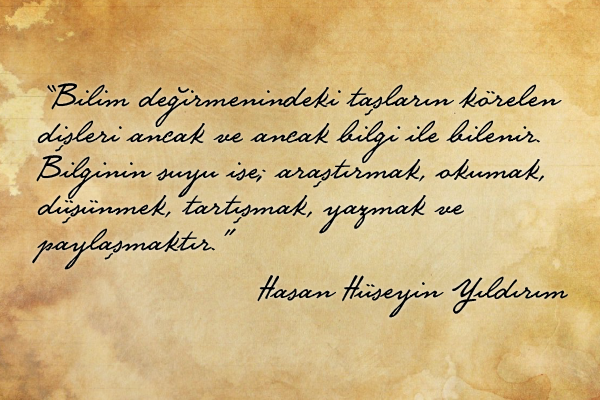 “Bilim değirmenindeki taşların körelen
dişleri ancak ve ancak bilgi ile bilenir.
Bilginin suyu ise; araştırmak, okumak,
düşünmek, tartışmak, yazmak ve
paylaşmaktır.”
Hasan Hüseyin Yıldırım